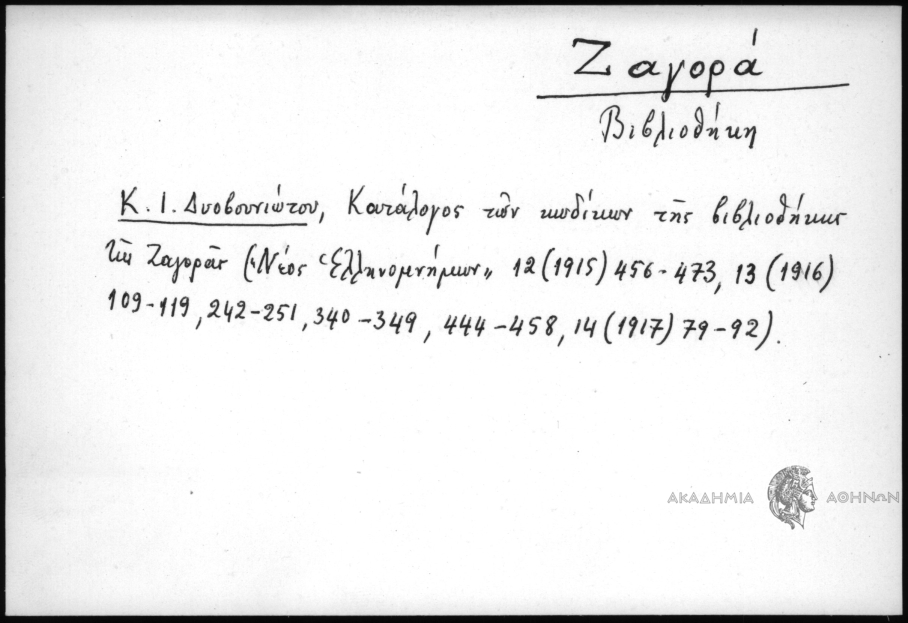 Ζαγορά
Βιβλιοθήκη
Κ. Ι. Δυοβουνιώτου, Κατάλογος τῶν κωδίκων τῆς βιβλιοθήκης
τῆς Ζαγορᾶς („Νέος Ἑλληνομνήμων„ 12 (1915) 456-473, 13 (1916)
109-119, 242-251, 340-349, 444-458, 14 (1917) 79-92).
ΑΚΑΔΗΜΙΑ ΑΘΗΝΩΝ